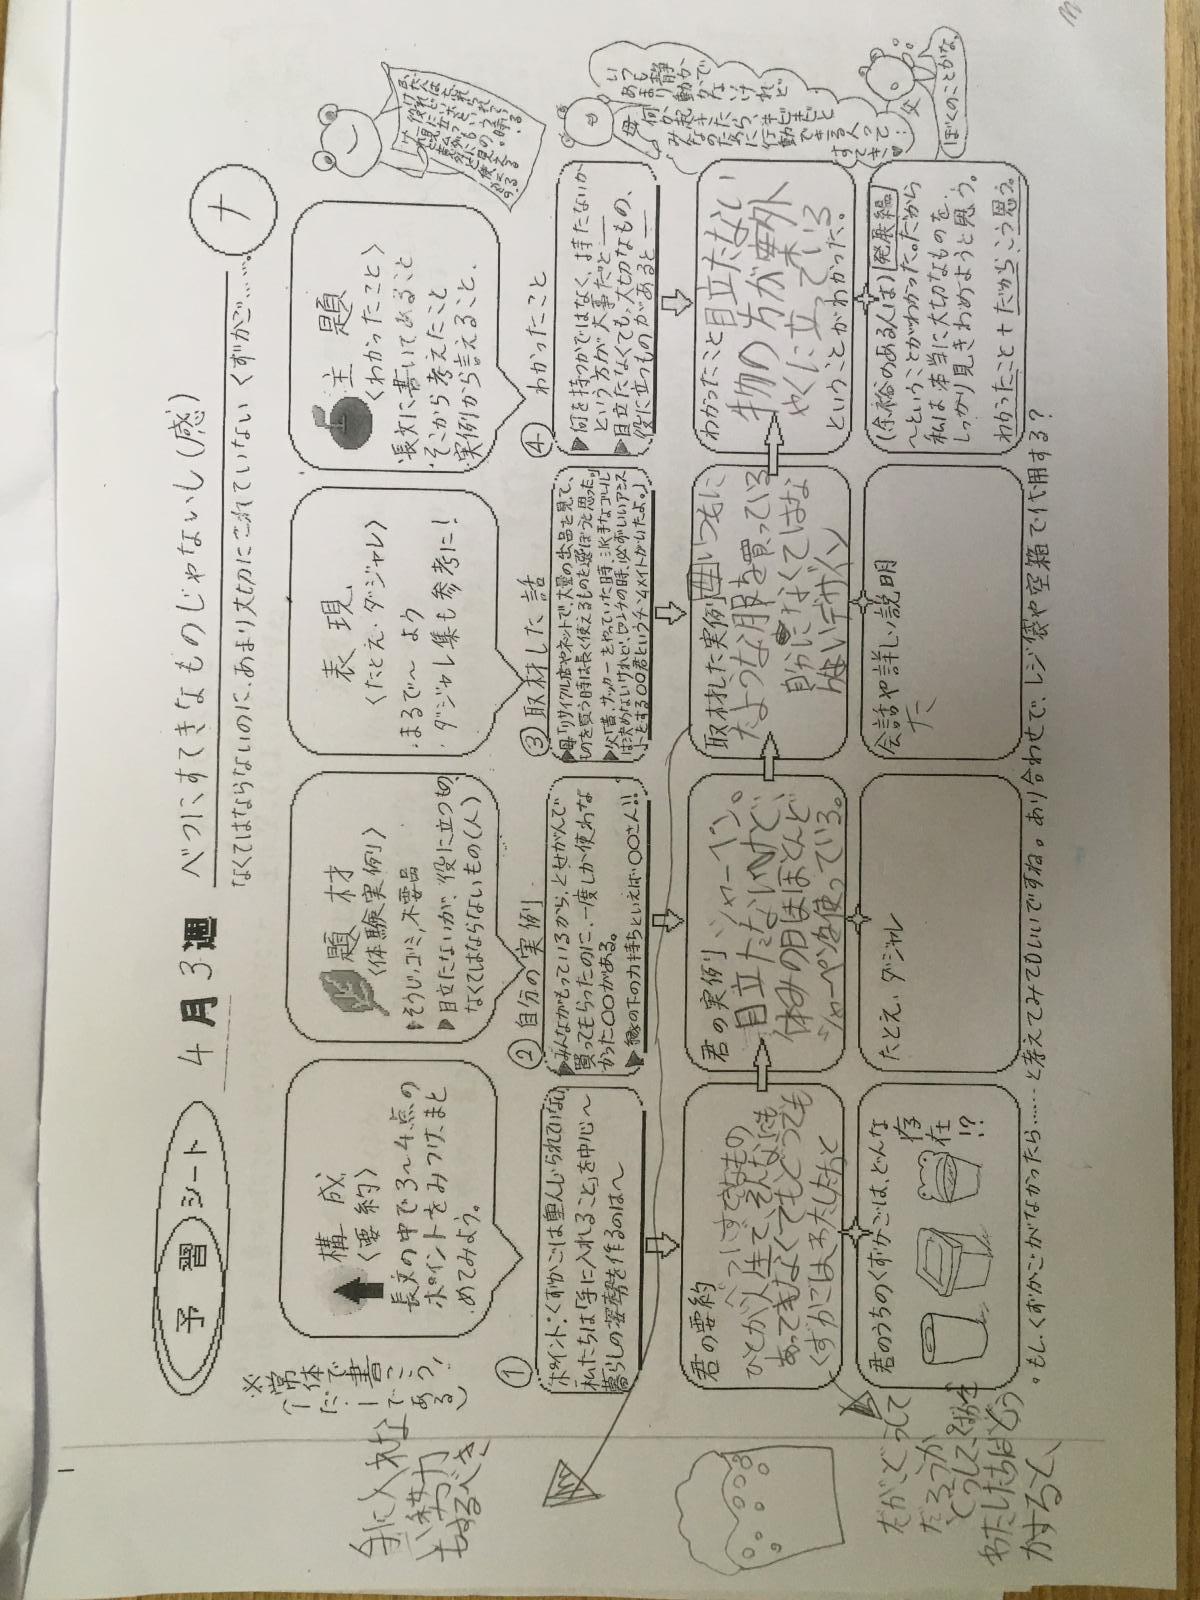 予習シート
4月3週
べつにすてきなものじゃないし(感)
ナ
なくてはならないのに、あまり大切にされていないくずかご……。
※常体で書こう!
(だ―である)
構成
〈要約〉
長文の中で3~4点の
ポイントをみつけ、まと
めてみよう。
題材
〈体験実例〉
▶そうじ、ゴミ、不要品
▶目立たないが、役に立つもの
なくてはならないもの(人)
表現
〈たとえ・ダジャレ〉
・まるで~よう
・ダジャレ集も参考に!
主題
〈わかったこと〉
・長文に書いてあること
・そこから考えたこと
・実例から言えること、
①
ポイント:くずかごは重んじられていない
私たちは「手に入れること」を中心~
暮らしの姿勢を作るのは~
②自分の実例
▶みんながもっているから、とせがんで
買ってもらったのに、一度しか使わな
かった〇〇がある。
▶縁の下の力持ちといえば〇〇さん!!
③取材した話
▶母「リサイクル店やネットで、大量の出品を見て、
ものを買う時は長く使えるものを選ぼうと思った。」
▶父「昔、サッカーをやっていた時、派手なゴール
は決めないけれど、ピンチの時、必ずいいアシス
トをする〇〇君というチームメイトがいたよ。」
④わかったこと
▶何を持つかではなく、まず持たないか
という方が大事だと――
▶目立たなくても、大切なもの、
役に立つものがあると――
君の要約
べつにすてきなもの
ひとが人生で、そんなにも
あってもなくてもどうでも
くずかごは、わたしたちと
君の実例 シャーペン。
目立たないけど、
休みの日はほとんど、
シャーペンを使っている。
取材した実例 母いつもに
たような服を買っている
自分になくてはな
らないデザイン
わかったこと 目立たない
物の方が案外
やくに立っている
ということがわかった。
君のうちのくずかごは、どんな
存在!?
たとえ、ダジャレ
会話や詳しい説明
た
(余裕のある人は)発展編
~ということがわかった。だから
私は本当に大切なものを、
しっかり見きわめようと思う。
わかったこと+だからこう思う。
・もし、くずかごがなかったら……と考えてみてもいいですね。あり合わせで、レジ袋や空箱で代用する?
手に入れな
い努力
もするべき
だがどうして
だろうか
わたしたちはどう
かすると、
母
いつも静かで
あまり動かないけれど
何か起きたら、
みんなのために行動できる人って
すてき♥
父
ぼくのことかな。